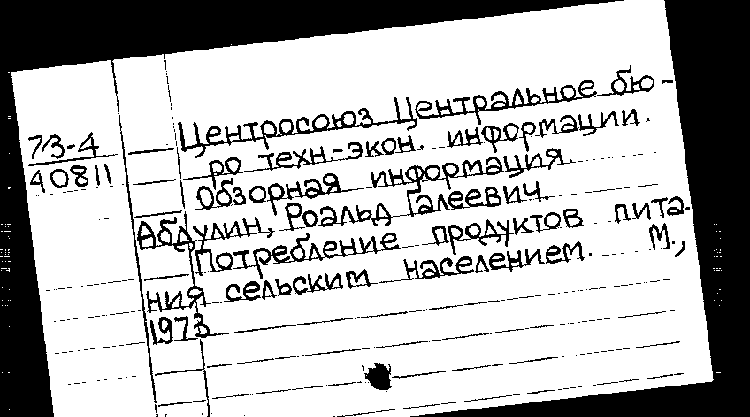 73-4
40811
Центросоюз Центральное бю-
ро техн.-экон. информации.
Обзорная информация.
Абдулин, Роальд Галеевич.
Потребление продуктов пита-
ния сельским населением. М.,
1973